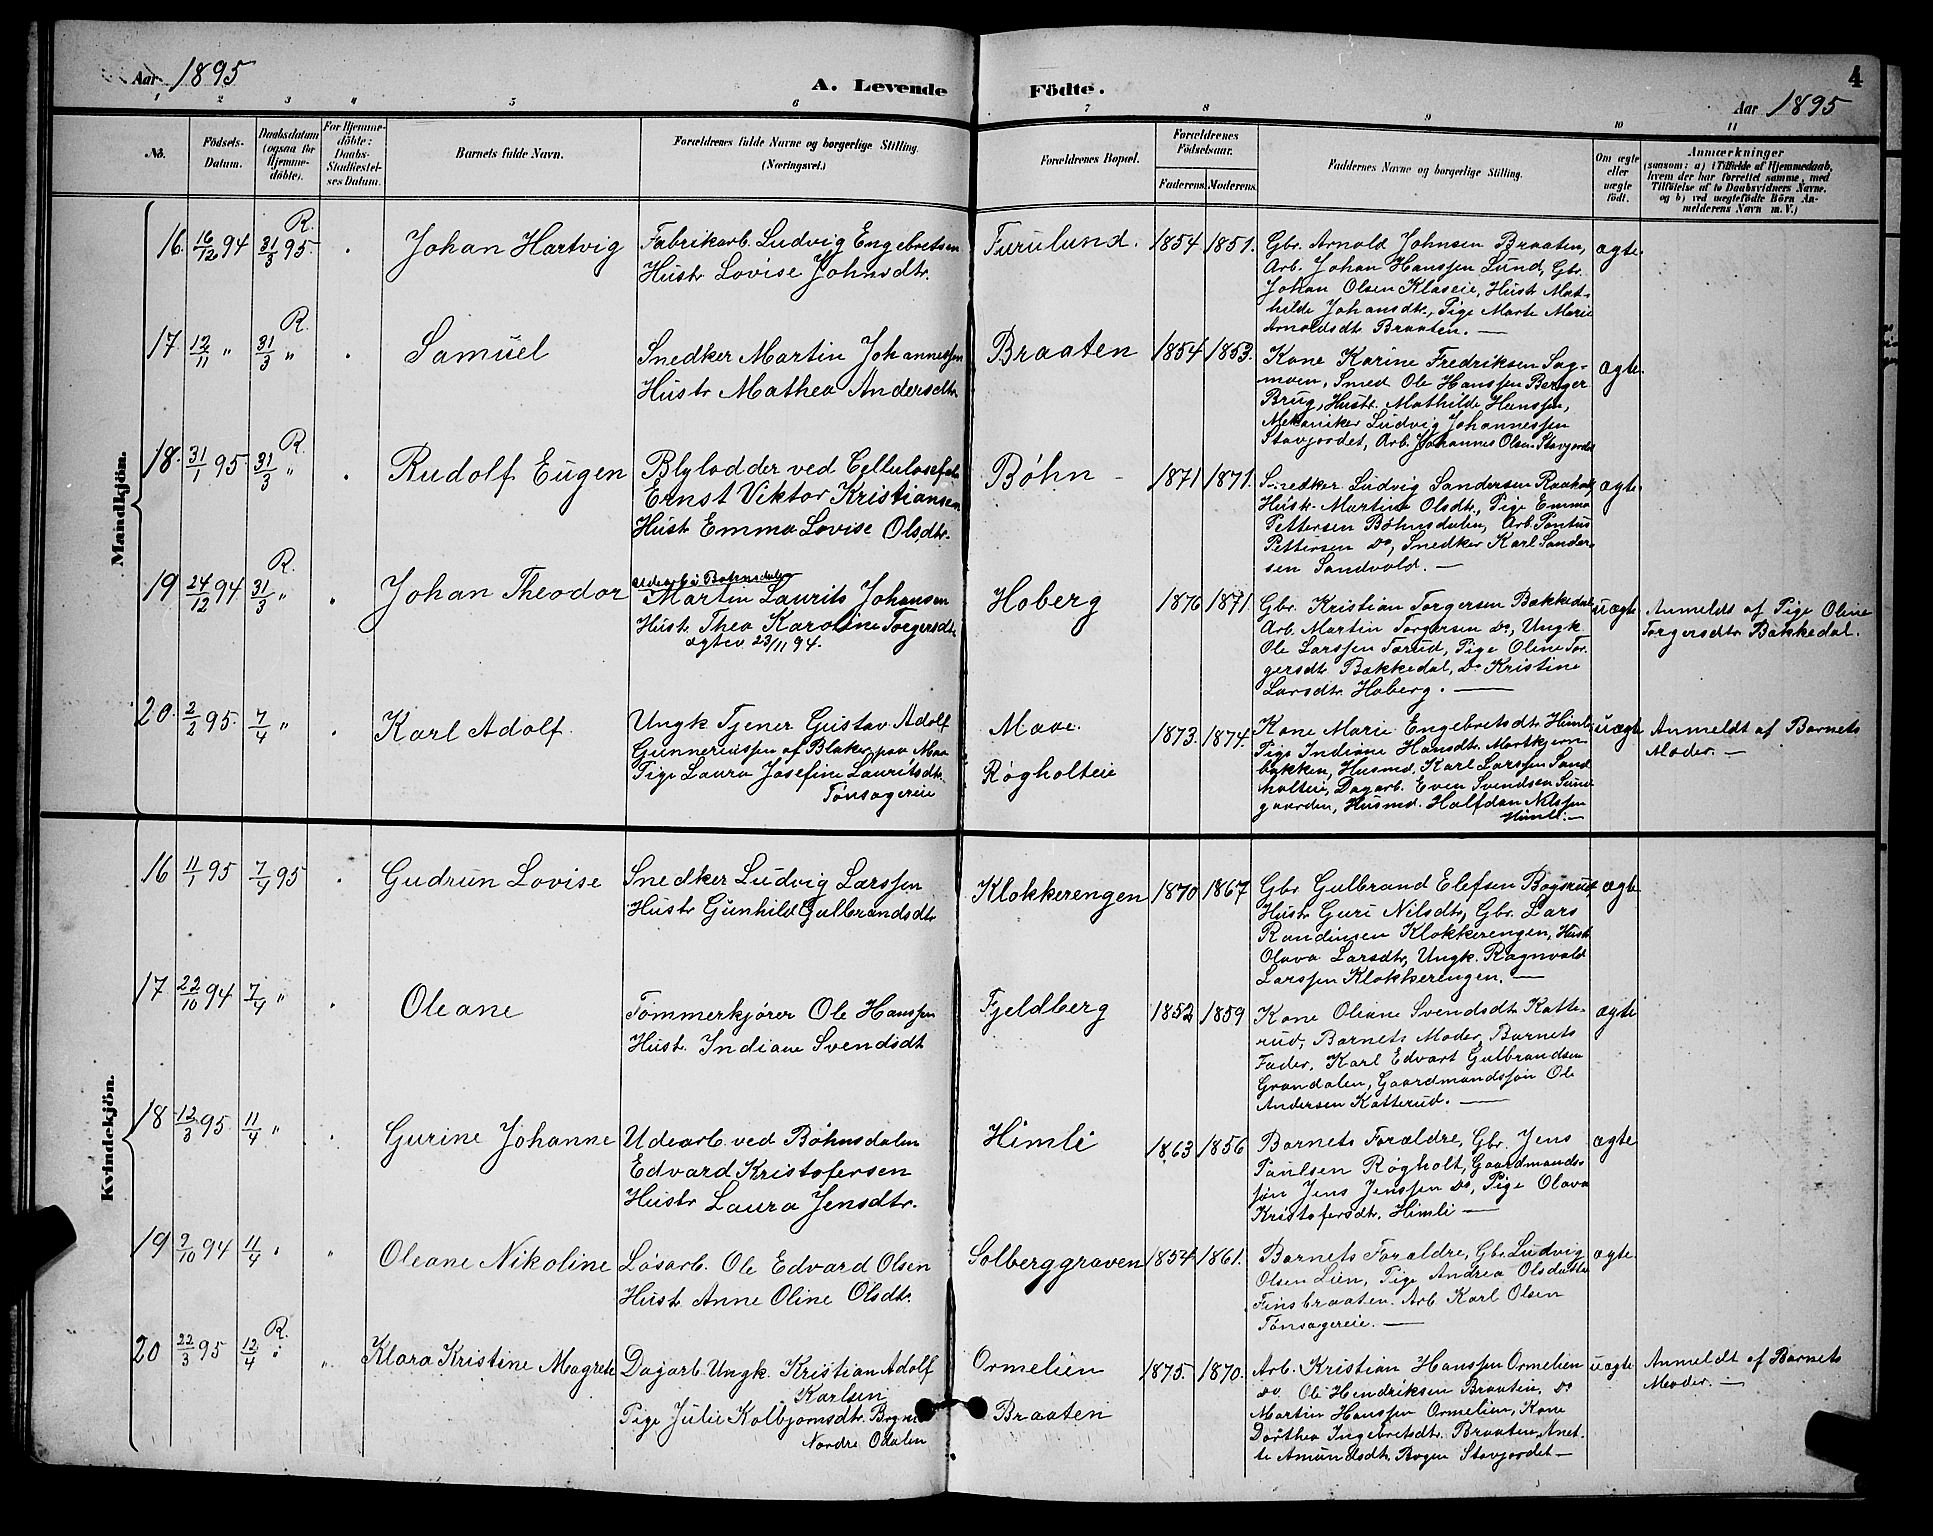 Aar 1895
A. Levende Födte.
4
Aar 1895
1 2 3 4 5 6 7 8 9 10 11
No.
Födsels-Datum.
Daabsdatum (ogsaa for Hjemme-döbte).
For Hjemme-döbte: Daabs-Stadfæstel-ses Datum.
Barnets fulde Navn.
Forældrenes fulde Navne og borgerlige Stilling. (Næringsvei.)
Forældrenes Bopæl.
Forældrenes Födselsaar.
Faderens. Moderens.
Faddernes Navne og borgerlige Stilling.
Om ægte eller uægte födt.
Anmærkninger
(saasom: a) i Tilfælde af Hjemmedaab,
hvem der har forrettet samme, med
Tilföielse af to Daabsvidners Navne,
og b) ved uægtefödte Börn An-
melderens Navn m. V.)
Mandkjön.
16. 16/12 94 R. 31/3 95. Johan Hartvig
Fabrikarb. Ludvig Engebretsen
Hustr Lovise Johnsdtr.
Furulund. 1854 1851.
Gbr. Arnold Johnsen Braaten,
Arb. Johan Hanssen Lund, Gbr.
Johan Olsen Klaseie, Hustr Mat-
hilde Johansdtr., Pige Marte Marie
Arnoldsdtr Braaten. —
ægte.
17. 12/11 " R. 31/3 " Samuel
Snedker Martin Johannessen
Hustr Mathea Andersdtr.
Braaten 1854 1853.
Kone Karine Fredriksen Sag-
moen, Smed Ole Hanssen Berger
Brug, Hustr. Mathilde Hanssen,
Mekaniker Ludvig Johannessen
Stavjordet, Arb. Johannes Olsen Stavjordet
ægte.
18. 31/1 95. R. 31/3 " Rudolf Eugen
Blylodder ved Cellulosefab
Ernst Viktor Kristiansen
Hustr Emma Lovise Olsdtr.
Bøhn - 1871 1871.
Snedker Ludvig Sandersen Raaholt
Hustr. Martine Olsdtr., Pige Emma
Pettersen Bøhnsdalen, Arb. Pontus
Pettersen Do, Snedker Karl Sander-
sen Sandvold. —
ægte.
19 24/12 94 R. 31/3 " Johan Theodor
Udearb. i Bøhnsdalen
Martin Laurits Johansen
Hustr. Thea Karoline Torgersdtr
ægtev. 23/11 94.
Hoberg 1876 1871.
Gbr. Kristian Torgersen Bækkedal
Arb. Martin Torgersen Do, Ungk.
Ole Larssen Tærud, Pige Oline Tor-
gersdtr Bækkedal, Do Kristine
Larsdtr. Hoberg. —
uægte
Anmeldt af Pige Oline
Torgersdtr Bækkedal.
20. 2/2 95. 7/4 " Karl Adolf.
Ungk Tjener Gustav Adolf
Gunneriussen af Blaker, paa Moe
Pige Laura Josefine Lauritsdtr.
Tønsagereie
Moe.
Røgholteie
1873. 1874.
Kone Marie Engebretsdtr Himli
Pige Indiane Hansdtr. Mortkjern-
bakken, Husmd. Karl Larssen Sand
holteie, Dagarb. Even Svendsen Sund
gaarden, Husmd. Halfdan Nilssen
Himli. —
uægte
Anmeldt af Barnets
Moder. —
Kvindekjön.
16 11/1 95 7/4 95 Gudrun Lovise
Snedker Ludvig Larssen
Hustr Gunhild Gulbrandsdtr
Klokkerengen 1870 1867
Gbr. Gulbrand Elefsen Bogsrud
Hustr Guri Nilsdtr, Gbr. Lars
Randinsen Klokkerengen, Hust
Olava Larsdtr, Ungk. Ragnvald
Larssen Klokkerengen. —
ægte
17 22/10 94 7/4 " Oleane
Tømmerkjører Ole Hanssen
Hustr. Indiane Svendsdt
Fjeldberg 1852 1859
Kone Oliane Svendsdt Katte-
rud, Barnets Moder, Barnets
Fader, Karl Edvart Gulbrandsen
Grandalen, Gaardmandssøn Ole
Andersen Katterud. —
ægte
18 12/3 95. 11/4 " Gurine Johanne
Udearb. ved Bøhnsdalen
Edvard Kristofersen
Hustr Laura Jensdtr.
Himli 1863 1856
Barnets Forældre, Gbr. Jens
Paulsen Røgholt, Gaardmands-
søn Jens Jenssen Do, Pige Olava
Kristofersdtr. Himli —
ægte
19 9/10 94 11/4 " Oleane Nikoline
Løsarb. Ole Edvard Olsen
Hustr Anne Oline Olsdtr.
Solberggraven 1854 1861.
Barnets Forældre, Gbr. Ludvig
Olsen Lien, Pige Andrea Olsdatter
Finsbraaten. Arb. Karl Olsen
Tønsagereie. —
ægte
20 22/3 95 R. 12/4 " Klara Kristine Magrete
Dagarb. Ungk. Kristian Adolf
Karlsen
Pige Julie Kolbjørnsdtr.
Nordre Odalen
Ormelien
Braaten
1875. 1870.
Arb. Kristian Hanssen Ormelien
Do. Ole Hendriksen Braaten, Do
Martin Hanssen Ormelien, Kone
Dorthea Ingebretsdtr. Braaten, Anet-
te Amundsdtr. Bogen Stavjordet —
uægte
Anmeldt af Barnets
Moder. —